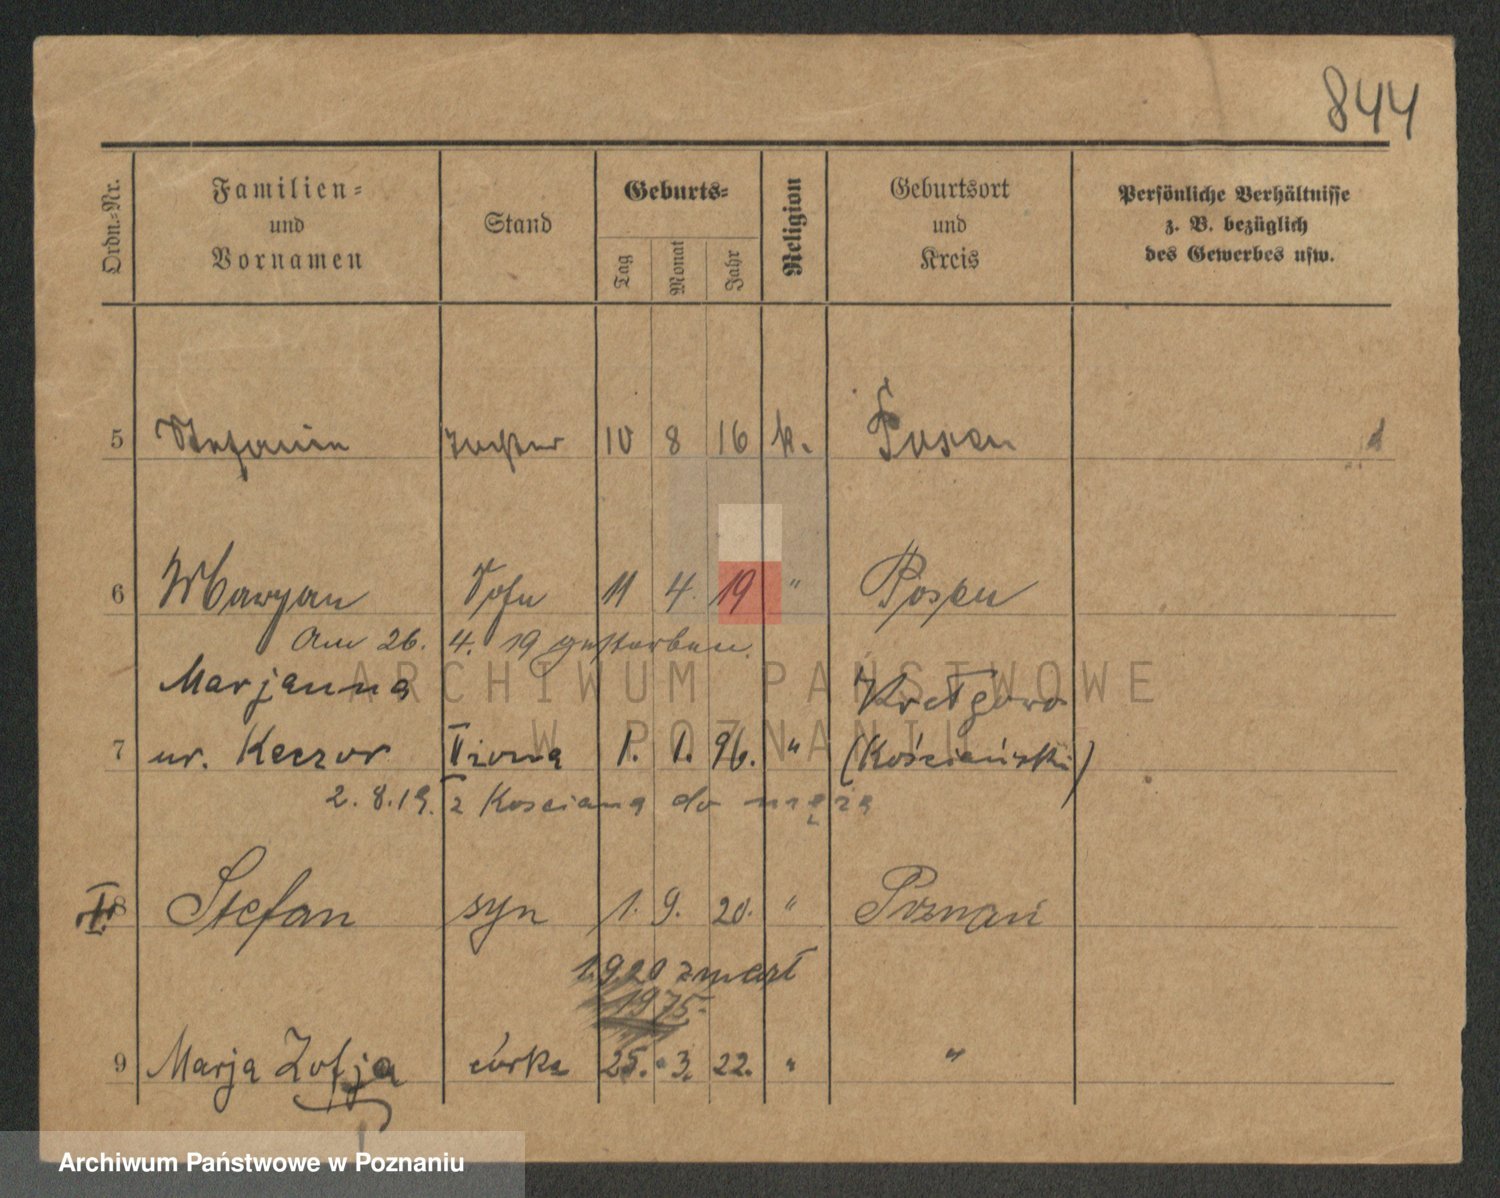 844
Ordn.-Nr. Familien- und Vornamen Stand Geburts- Tag Monat Jahr Religion Geburtsort und Kreis Persönliche Verhältnisse z. B. bezüglich des Gewerbes usw.
5 Stefanie Tochter 10 8 16 k. Posen
6 Maryan Sohn 11 4. 19 " Posen
Am 26. 4. 19 gestorben.
Marjanna
7 ur. Keczor II żona 1. 1. 96. " (Kościański)
2.8.19. z Kosciana do męża
8 Stefan syn 1. 9. 20. " Poznań
1920 zmarł
1975.
9 Marja Zofja córka 25. 3. 22. " "
ARCHIWUM PAŃSTWOWE
W POZNANIU
Archiwum Państwowe w Poznaniu